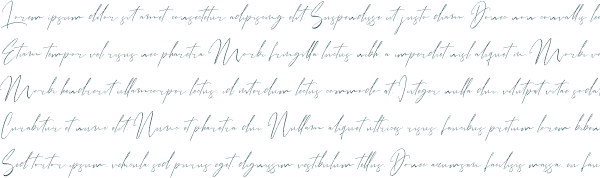 Lorem ipsum dolor sit amet consectetur adipiscing elit Suspendisse ut justo diam. Donec non convallis leo
Etiam tempor vel risus nec pharetra Morbi fringilla luctus nibh a imperdiet nisl aliquet in Morbi ve
Morbi hendrerit ullamcorper lectus id interdum lectus commodo at Integer nulla dui volutpat vitae sodal
Curabitur et nunc elit Nunc et pharetra dui Nullam aliquet ultrices risus faucibus pretium lorem biben
Sed tortor ipsum vehicula sed purus eget dignissim vestibulum tellus. Donec accumsan facilisis massa eu fau